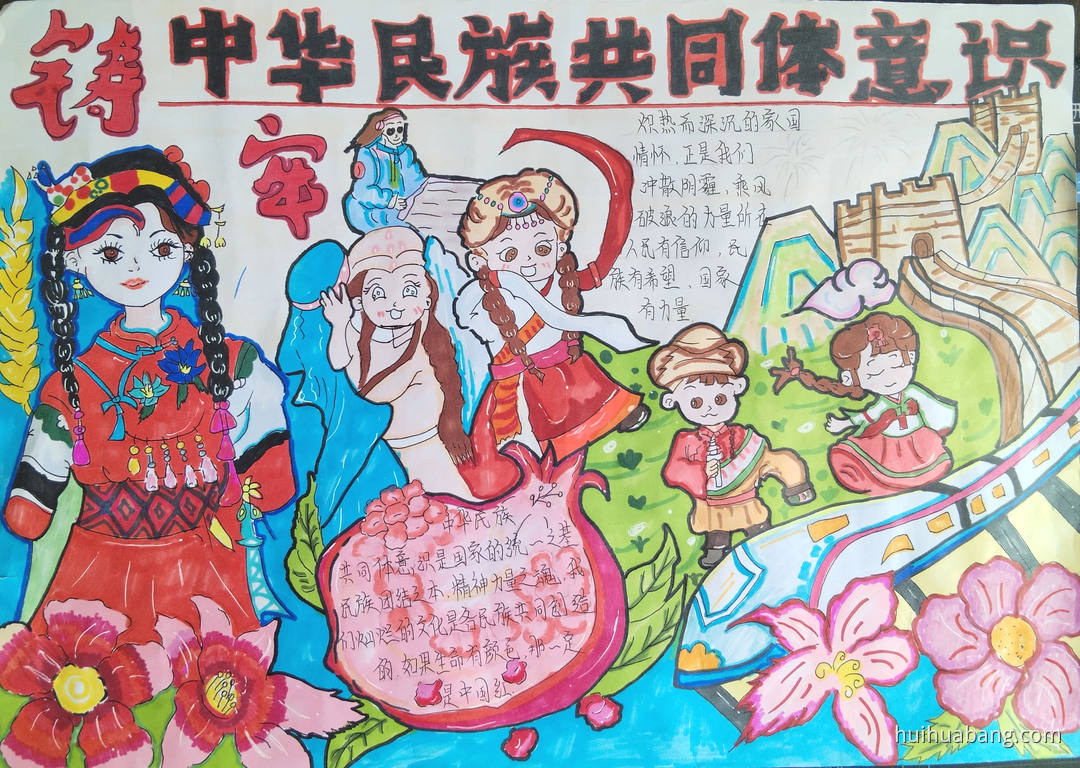 铸牢
中华民族共同体意识
炽热而深沉的家国
情怀,正是我们
冲散阴霾、乘风
破浪的力量所在
人民有信仰,民
族有希望、国家
有力量
中华民族
共同体意识是国家的统一之基
民族团结之本,精神力量之魂,我
们灿烂的文化是各民族共同创给
的.如果生命有颜色,那一定
是中国红
huihuabang.com